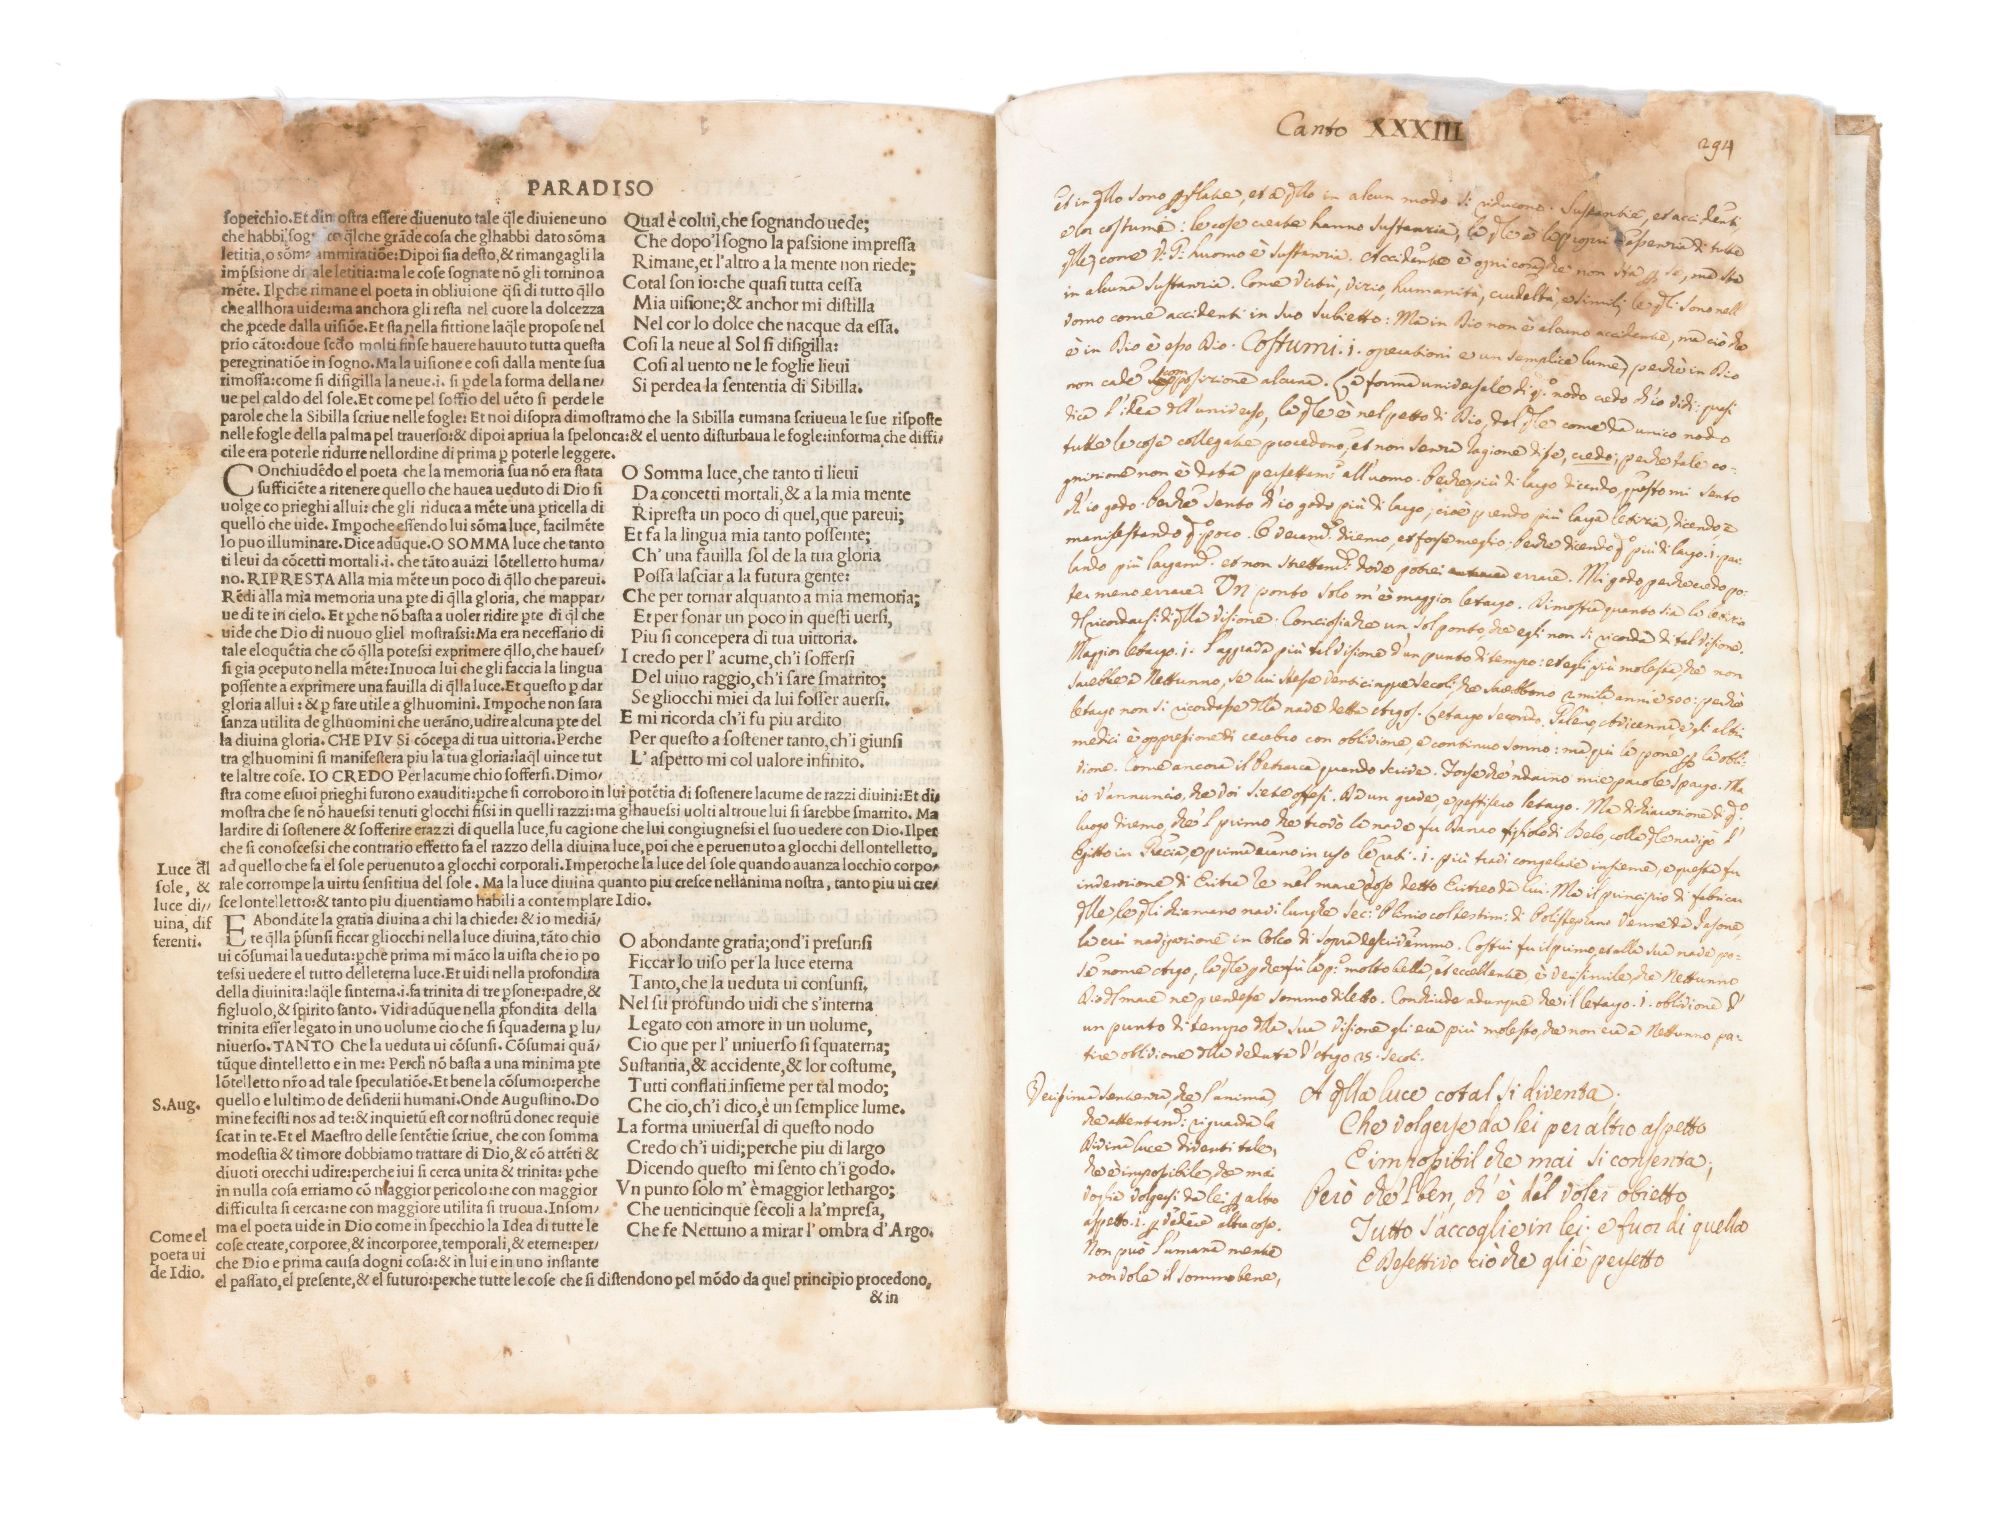 PARADISO
soperchio. Et dimostra essere diuenuto tale q̃le diuiene uno
che habbi q̃lche grãde cosa che glhabbi dato sõma
letitia, o sõma ammiratiõe: Dipoi sia desto, & rimangagli la
imp̃ssione di tale letitia: ma le cose sognate nõ gli tornino a
mẽte. Il ꝑche rimane el poeta in obliuione q̃si di tutto q̃llo
che allhora uide: ma anchora gli resta nel cuore la dolcezza
che ꝓcede dalla uisiõe. Et sta nella fittione laq̃le propose nel
prio cãto: doue scd̃o molti finse hauere hauuto tutta questa
peregrinatiõe in sogno. Ma la uisione e cosi dalla mente sua
rimossa: come si disigilla la neue .i. si ꝑde la forma della ne/
ue pel caldo del sole. Et come pel soffio del uẽto si perde le
parole che la Sibilla scriue nelle fogle: Et noi disopra dimostramo che la Sibilla cumana scriueua le sue risposte
nelle fogle della palma pel trauerso: & dipoi apriua la spelonca: & el uento disturbaua le fogle: informa che diffi/
cile era poterle ridurre nellordine di prima ꝑ poterle leggere.
Qual è colui, che sognando uede;
Che dopo'l sogno la passione impressa
Rimane, et l'altro a la mente non riede;
Cotal son io: che quasi tutta cessa
Mia uisione; & anchor mi distilla
Nel cor lo dolce che nacque da essa.
Cosi la neue al Sol si disigilla:
Cosi al uento ne le foglie lieui
Si perdea la sententia di Sibilla.
COnchiudẽdo el poeta che la memoria sua nõ era stata
sufficiẽte a ritenere quello che hauea ueduto di Dio si
uolge co prieghi allui: che gli riduca a mẽte una ꝑticella di
quello che uide. Imꝑoche essendo lui sõma luce, facilmẽte
lo puo illuminare. Dice adũque. O SOMMA luce che tanto
ti leui da cõcetti mortali .i. che tãto auãzi lõtelletto huma/
no. RIPRESTA Alla mia mẽte un poco di q̃llo che pareui.
Rẽdi alla mia memoria una ꝑte di q̃lla gloria, che mappar/
ue di te in cielo. Et ꝑche nõ basta a uoler ridire ꝑte di q̃l che
uide che Dio di nuouo gliel mostrassi: Ma era necessario di
tale eloquẽtia che cõ q̃lla potessi exprimere q̃llo, che haues/
si gia ꝑceputo nella mẽte: Inuoca lui che gli faccia la lingua
possente a exprimere una fauilla di q̃lla luce. Et questo ꝑ dar
gloria allui: & ꝑ fare utile a glhuomini. Impoche non sara
sanza utilita de glhuomini che uerãno, udire alcuna ꝑte del
la diuina gloria. CHE PIV Si cõcepa di tua uittoria. Perche
tra glhuomini si manifestera piu la tua gloria: laq̃l uince tut
te laltre cose. IO CREDO Per lacume chio soffersi. Dimo/
stra come esuoi prieghi furono exauditi: ꝑche si corroboro in lui potẽtia di sostenere lacume de razzi diuini: Et di/
mostra che se nõ hauessi tenuti glocchi fissi in quelli razzi: ma glhauessi uolti altroue lui si sarebbe smarrito. Ma
lardire di sostenere & sofferire erazzi di quella luce, fu cagione che lui congiugnessi el suo uedere con Dio. Il per
che si conoscessi che contrario effetto fa el razzo della diuina luce, poi che e peruenuto a glocchi dellontelletto,
ad quello che fa el sole peruenuto a glocchi corporali. Imperoche la luce del sole quando auanza locchio corpo/
rale corrompe la uirtu sensitiua del sole. Ma la luce diuina quanto piu cresce nellanima nostra, tanto piu ui cre/
sce lontelletto: & tanto piu diuentiamo habili a contemplare Idio.
O Somma luce, che tanto ti lieui
Da concetti mortali, & a la mia mente
Ripresta un poco di quel, que pareui;
Et fa la lingua mia tanto possente;
Ch' una fauilla sol de la tua gloria
Possa lasciar a la futura gente:
Che per tornar alquanto a mia memoria;
Et per sonar un poco in questi uersi,
Piu si concepera di tua uittoria.
I credo per l'acume, ch'i soffersi
Del uiuo raggio, ch'i sare smarrito;
Se gliocchi miei da lui fosser auersi.
E mi ricorda ch'i fu piu ardito
Per questo a sostener tanto, ch'i giunsi
L'aspetto mi col ualore infinito.
Luce d̃l
sole, &
luce di/
uina, dif
ferenti.
EAbondãte la gratia diuina a chi la chiede: & io mediã/
te q̃lla p̃sunsi ficcar gliocchi nella luce diuina, tãto chio
ui cõsumai la ueduta: ꝑche prima mi mãco la uista che io po
tessi uedere el tutto delleterna luce. Et uidi nella profondita
della diuinita: laq̃le sinterna .i. fa trinita di tre ꝑsone: padre, &
figluolo, & spirito santo. Vidi adũque nella ꝓfondita della
trinita esser legato in uno uolume cio che si squaderna ꝑ lu/
niuerso. TANTO Che la ueduta ui cõsunsi. Cõsumai quã/
tũque dintelletto e in me: Perch nõ basta a una minima ꝑte
lõtelletto nr̃o ad tale speculatiõe. Et bene la cõsumo: perche
quello e lultimo de desiderii humani. Onde Augustino. Do
mine fecisti nos ad te: & inquietũ est cor nostrũ donec requie
scat in te. Et el Maestro delle sentẽtie scriue, che con somma
modestia & timore dobbiamo trattare di Dio, & cõ attẽti &
diuoti orecchi udire: perche iui si cerca unita & trinita: ꝑche
in nulla cosa erriamo cõ maggior pericolo: ne con maggior
difficulta si cerca: ne con maggiore utilita si truoua. In som/
ma el poeta uide in Dio come in specchio la Idea di tutte le
cose create, corporee, & incorporee, temporali, & eterne: per/
che Dio e prima causa dogni cosa: & in lui e in uno instante
el passato, el presente, & el futuro: perche tutte le cose che si distendono pel mõdo da quel principio procedono,
& in
S. Aug.
Come el
poeta ui
de Idio.
O abondante gratia; ond'i presunsi
Ficcar lo uiso per la luce eterna
Tanto, che la ueduta ui consunsi.
Nel su profundo uidi che s'interna
Legato con amore in un uolume,
Cio que per l'uniuerso si squaterna;
Sustantia, & accidente, & lor costume,
Tutti conflati insieme per tal modo;
Che cio, ch'i dico, è un semplice lume.
La forma uniuersal di questo nodo
Credo ch'i uidi; perche piu di largo
Dicendo questo mi sento ch'i godo.
Vn punto solo m'è maggior lethargo;
Che uenticinque secoli a la'mpresa,
Che fe Nettuno a mirar l'ombra d'Argo.
Canto XXXIII
294
Et in q̃llo sono ꝑflate, et a q̃llo in alcun modo si riducono. Sustantie, et accidenti,
e lor costumi: le cose create hanno sustanzia, la q̃le è la propri essenzia di tutte
q̃lle, come huomo è sustanzia. Accidente è ogni cosa, che non sta ꝑ se, ma sta
in alcuna sustanzia. Come virtù, vizio, humanità, crudeltà, e simili, le q̃li sono nell
uomo come accidenti in suo subietto: Ma in Dio non è alcuno accidente, ma ciò che
è in Dio è esso Dio. Costumi .i. operationi e un semplice lume, perchè in Dio
non cade composizione alcuna. La forma universale di q.º nodo credo ch'io vidi: quasi
dica l'idea dell'universo, la q̃le è nel petto di Dio, dal q̃le come da unico nodo
tutte le cose collegate procedono, et non senza ragione disse, credo; perche tale co-
gnizione non è data perfettam.e all'uomo. Perche più di largo dicendo, questo mi sento
ch'io godo. Perche sento ch'io godo più di largo, cioè prendo più larga letizia, dicendo, e
manifestando q.º poco. O veram.e diremo, et forse meglio: Perche dicendo q.º più di largo .i. par-
lando più largam.e et non strettam.e dove potrei errare. Mi godo, perche credo po-
ter meno errare. Un ponto solo m'è maggior letargo. Dimostra quanto sia la letizia
del ricordarsi di q̃lla visione. Conciosia che un sol ponto, che egli non si ricorda di tal visione.
Maggior letargo .i. l'aggrada più tal visione d'un punto di tempo: et egli più molesta, che non
sarebbe a Nettunno, se lui stesse venticinque secoli, che sarebbono 2 mila anni e 500: perchè
letargo non si ricordasse della nave detta Argos. Letargo secondo Galeno, Avicenna, e gli altri
medici è oppressione di cerebro con oblivione, e continuo sonno: ma qui lo pone ꝑ la obli-
vione. Come ancora il Petrarca quando scrive. Forse ch'indarno mie parole spargo. Ma
io v'annuncio, che voi siete offesi. Da un grave, e pestifero letargo. Ma di chiarazione di q.º
luogo diremo, che'l primo che trovò la nave fu Danao figliolo di Belo, colla q̃le navigò d'
Egitto in Grecia, e prima erano in uso le rati .i. più travi congelate insieme, e questa fu
invenzione di Eritra Re nel mare detto Eritreo da lui. Ma il principio di fabricar
q̃lle, le q̃li chiamano navi lunghe sec.º Plinio col testim: di Polistefano venne da Jasone,
la cui navigazione in Colco di sopra descrivemmo. Costui fu il primo, et alla sua nave po-
se nome Argo, la q̃le ꝑ che fù la p.ª molto bella, et eccellente, è verisimile che Nettunno
Dio del mare ne prendesse sommo diletto. Conchiude adunque che il letargo .i. oblivione d'
un punto di tempo della sua visione gli era più molesto, che non era a Nettunno pa-
tire oblivione della veduta d'Argo 25. secoli.
sentenza, che l'anima,
che attentam.e riguarda la
Divina luce diventi tale,
che è impossibile, che mai
voglia volgersi da lei ꝑ altro
aspetto .i. ꝑ vedere altra cosa.
Non può l'umana mente
non vole il sommo bene,
A q̃lla luce cotal si diventa.
Che volgersi da lei per altro aspetto
E impossibil che mai si consenta;
Però che'l ben, ch'è del voler obietto
Tutto s'accoglie in lei; e fuor di quella
E defettivo ciò che gli è perfetto